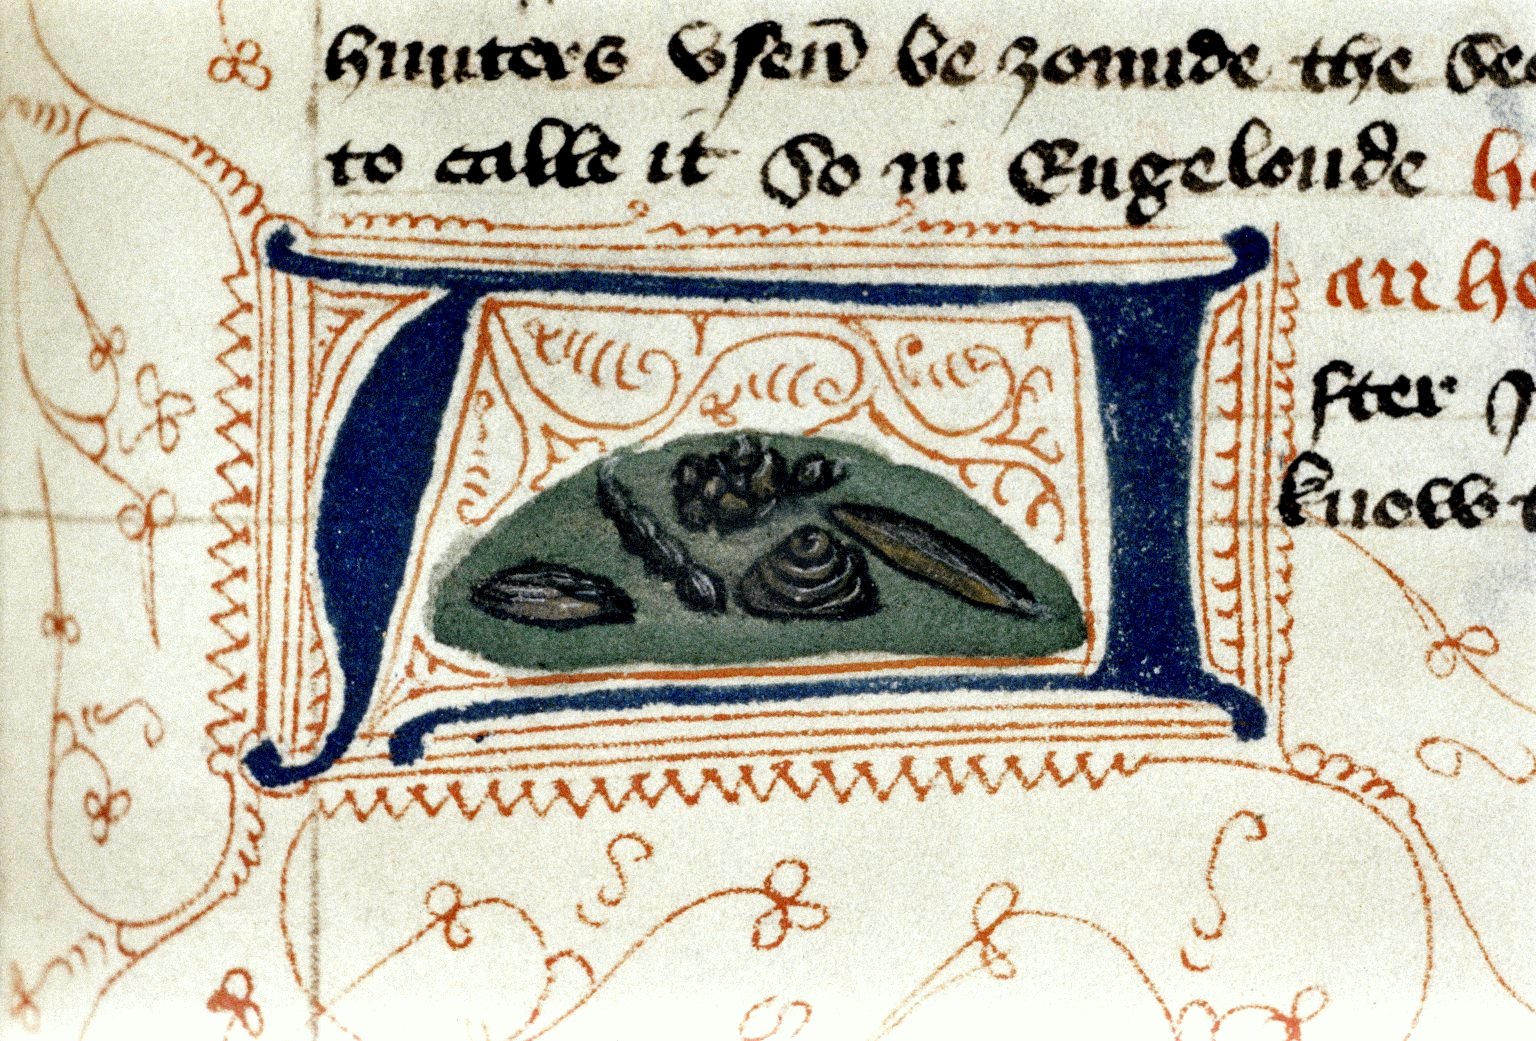 hunters vsen be ȝonnde the See
to calle it So in Engelonde h
an h
A fter
knoww